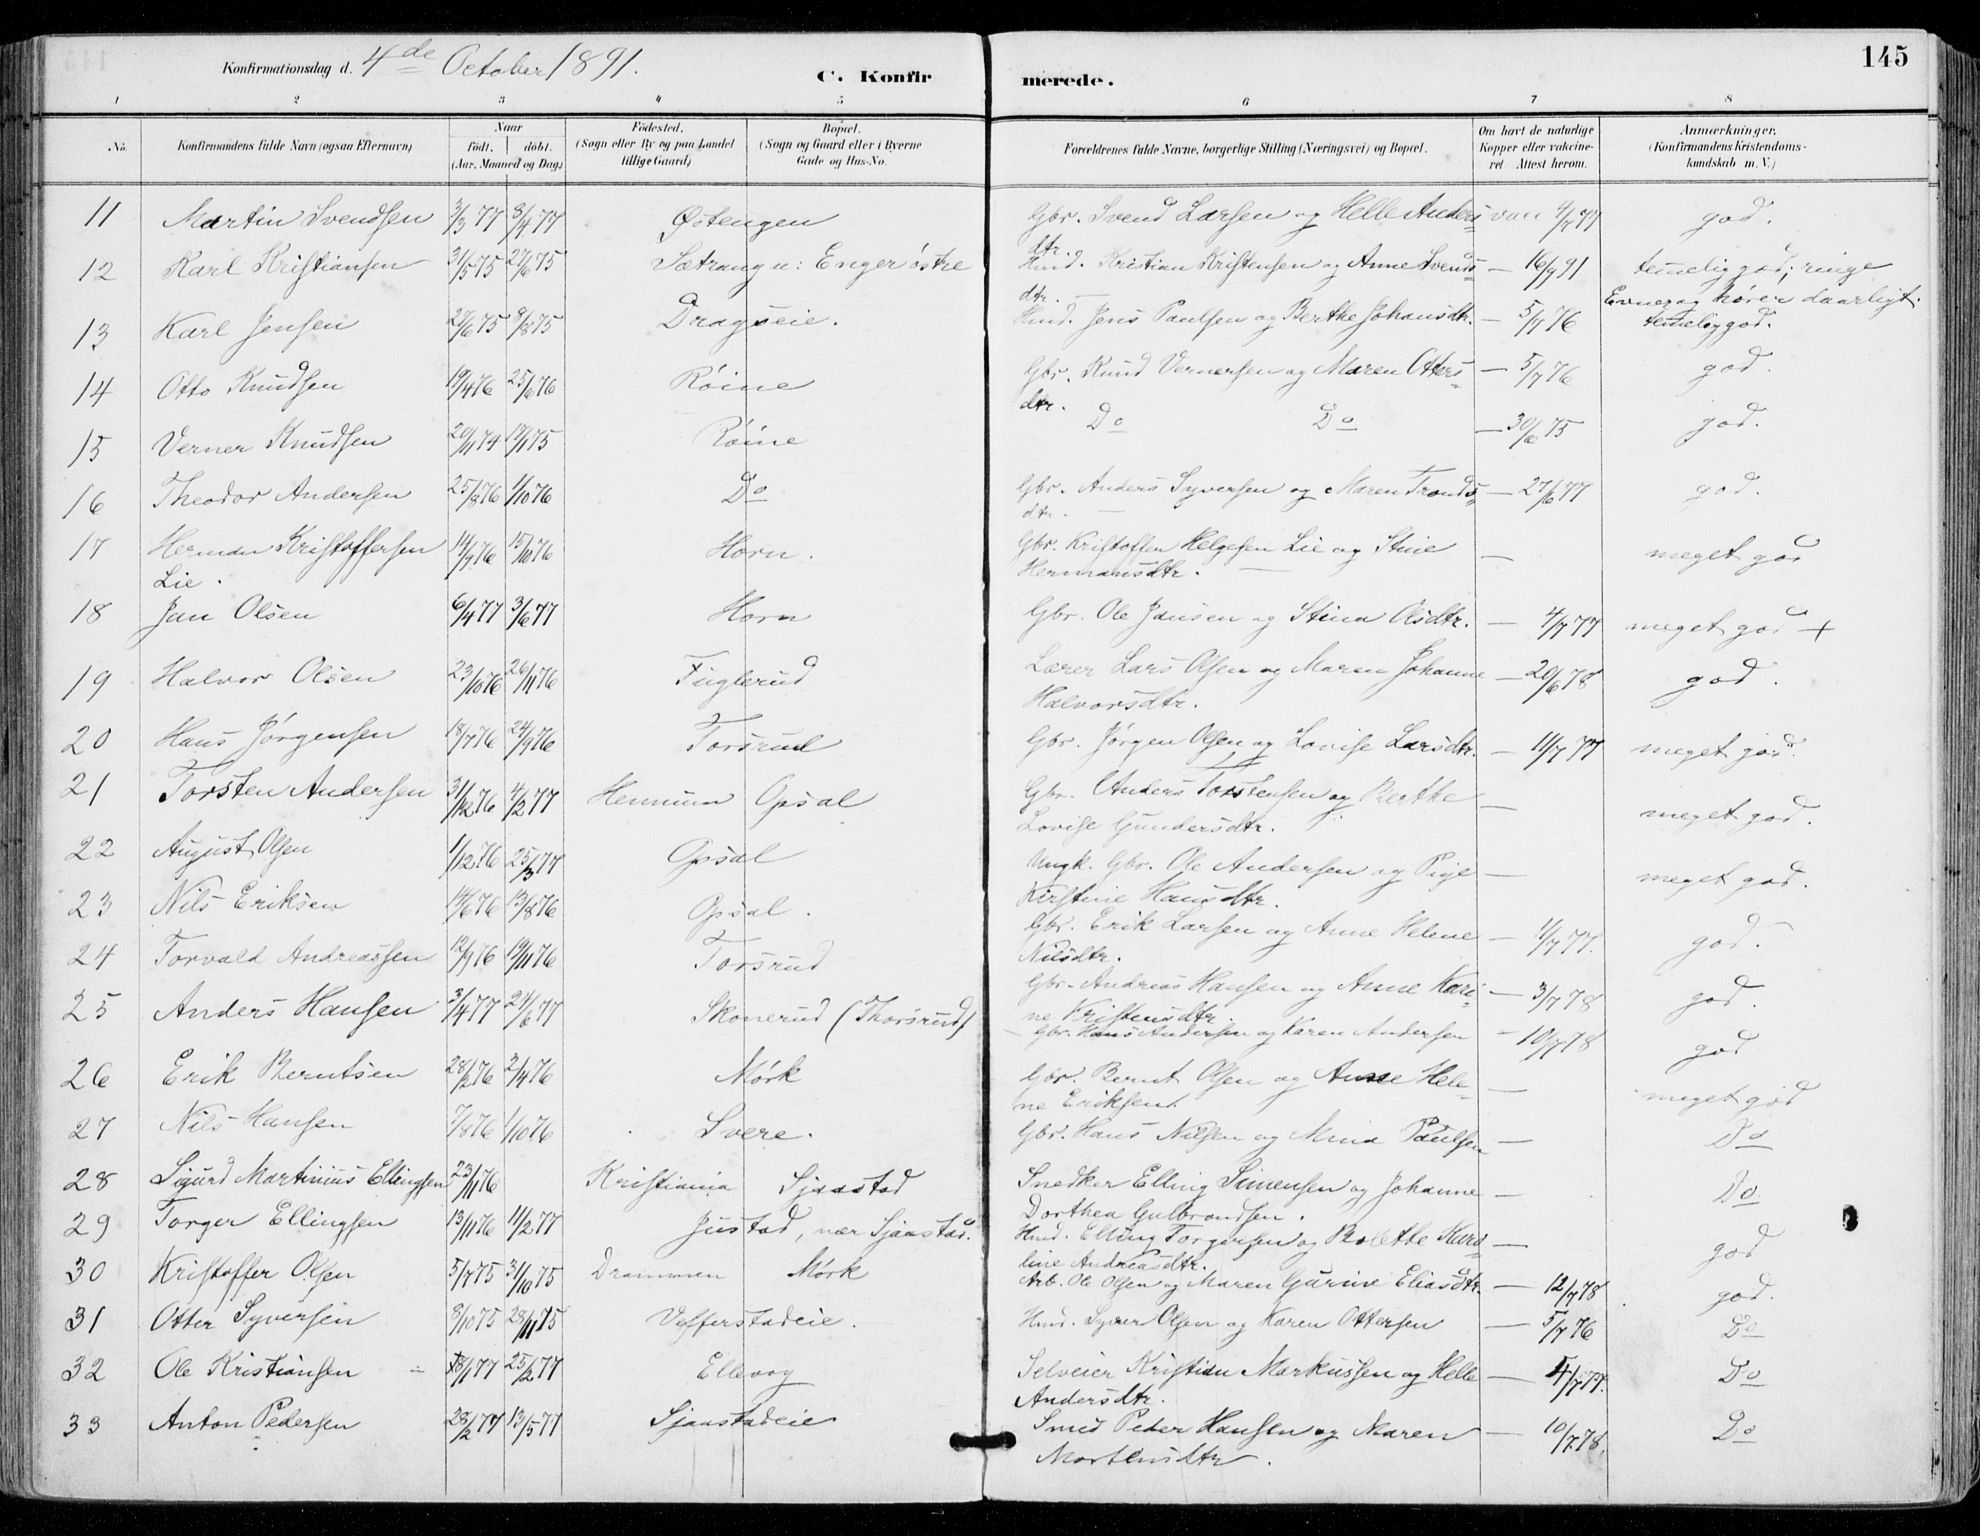 145
Konfirmationsdag d. 4de October 1891.
C. Konfir merede.
1 2 3 4 5 6 7 8
No. Konfirmandens fulde Navn (ogsaa Efternavn) Naar født. døbt. (Aar, Maaned og Dag) Fødested. (Sogn eller By og paa Landet tillige Gaard) Bopæl. (Sogn og Gaard eller i Byerne Gade og Hus-No. Forældrenes fulde Navne, borgerlige Stilling (Næringsvei) og Bopæl. Om havt de naturlige Kopper eller vakcineret. Attest herom. Anmærkninger. (Konfirmandens Kristendomskundskab m. V.)
11 Martin Svendsen 3/3 77 8/4 77 Østengen Gbr. Svend Larsen og Helle Anders= dtr. vac 4/7 77 god.
12 Karl Kristiansen 31/5 75 27/6 75 Sætrang u: Enger østre Hmd. Kristian Kristensen og Anne Svends= dtr. — 16/9 91 temelig god; ringe Evner og hører daarligt.
13 Karl Jensen 27/6 75 8/8 75 Dragseie. Hmd. Jens Paulsen og Berthe Johansdtr. — 5/7 76 temelig god.
14 Otto Knudsen 19/4 76 25/6 76 Röine Gbr. Knud Vernersen og Maren Otters= dtr. — 5/7 76 god.
15 Verner Knudsen 20/11 74 17/1 75 Röine Do Do — 30/6 75 god.
16 Theodor Andersen 25/8 76 1/10 76 Do Gbr. Anders Syversen og Maren Tronds= dtr. — 27/6 77 god.
17 Herman Kristoffersen Lie. 14/9 76 15/10 76 Horn. Gbr. Kristoffer Helgesen Lie og Stine Hermansdtr. — meget god
18 Jan Olsen 6/4 77 3/6 77 Horn Gbr. Ole Jansen og Stina Olsdtr. — 4/7 77 meget god +
19 Halvor Olsen 23/10 76 26/11 76 Fuglerud Lærer Lars Olsen og Maren Johanne Halvorsdtr. — 20/6 78 god.
20 Hans Jörgensen 18/7 76 24/9 76 Torsrud Gbr. Jörgen Olsen og Lovise Larsdtr. — 11/7 77 meget god.
21 Torsten Andersen 31/12 76 4/2 77 Hennum Opsal Gbr. Anders Torstensen og Berthe Lovise Gundersdtr. — meget god.
22 August Olsen 1/12 76 25/3 77 Opsal Ungk. Gbr. Ole Andersen og Pige Kirstine Hansdtr. — meget god.
23 Nils Eriksen 14/6 76 13/8 76 Opsal. Gbr. Erik Larsen og Anne Helene Nilsdtr. — 11/7 77. god.
24 Torvald Andreassen 12/9 76 19/11 76 Torsrud Gbr. Andreas Hansen og Anne Kari- ne Kristensdtr. — 3/7 78 god.
25 Anders Hansen 3/4 77 24/6 77 Skonerud (Thorsrud) Gbr. Hans Andersen og Karen Andersen — 10/7 78 god
26 Erik Berntsen 28/2 76 2/4 76 Mörk Gbr. Bernt Olsen og Anne Hele= ne Eriksen. — meget god
27 Nils Hansen 7/8 76 1/10 76 Svere. Gbr. Hans Nilsen og Mina Paulsen — Do
28 Sigurd Martinius Ellingsen 23/11 76 Kristiania Sjaastad Snedker Elling Simensen og Johanne Dorthea Gulbrandsen. — Do
29 Torger Ellingsen 13/11 76 11/2 77 Justad, nær Sjaastad. Hmd. Elling Torgersen og Bolette Karo= line Andreasdtr. — god
30 Kristoffer Olsen 5/7 75 31/10 75 Drammen Mörk Arb. Ole Olsen og Maren Gurine Eliasdtr. — 12/7 78 god.
31 Otter Syversen 8/10 75 28/11 75 Vefferstadeie. Hmd. Syver Olsen og Karen Ottersen — 5/7 76 Do
32 Ole Kristiansen 18/1 77 25/2 77 Ellevog Selveier Kristian Markussen og Helle Andersdtr. — 4/7 77. Do
33 Anton Pedersen 28/2 77 13/5 77 Sjaastadeie Smed Peder Hansen og Maren Mortensdtr. — 10/7 78. Do